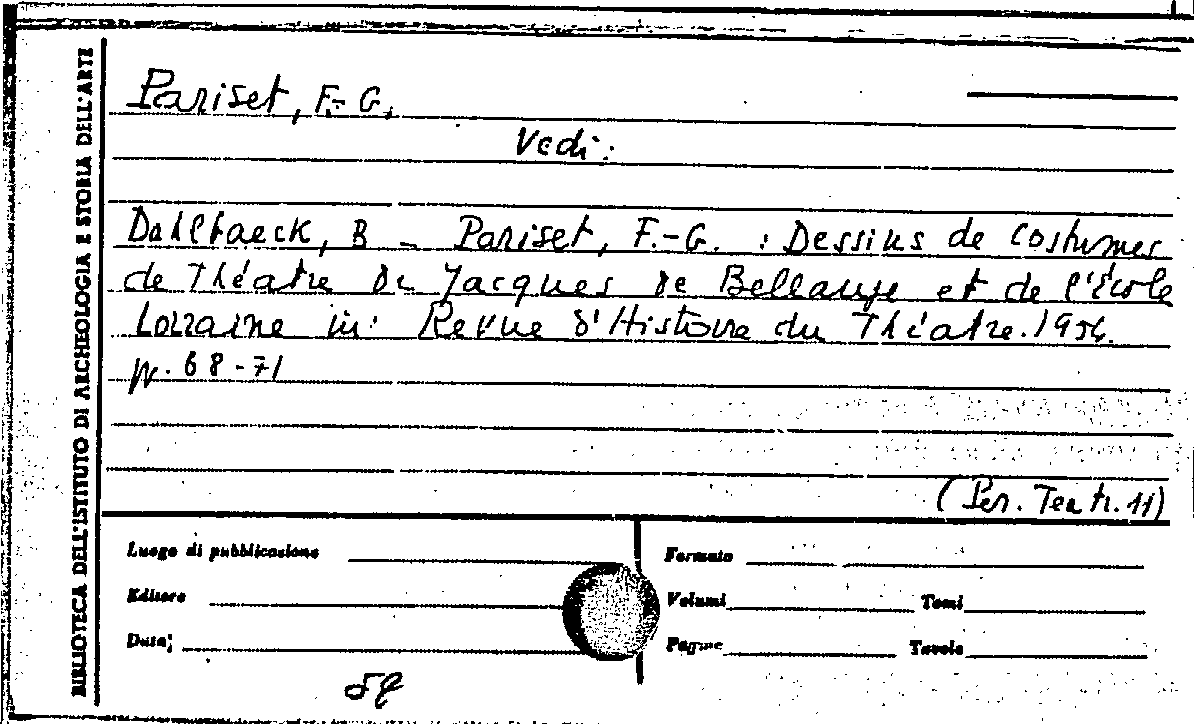 BIBLIOTECA DELL'ISTITUTO DI ARCHEOLOGIA E STORIA DELL'ARTE
Pariset, F.-G.
Vedi:
Dahlbaeck, B - Pariset, F.-G. : Dessins de Costumes
de Théatre de Jacques de Bellange et de l'École
Lorraine in: Revue d'Histoire du Théatre. 1954.
pp. 68-71
(Per. Teatr. 11)
Luogo di pubblicazione
Formato
Editore
Volumi Tomi
Data;
Pagine Tavole